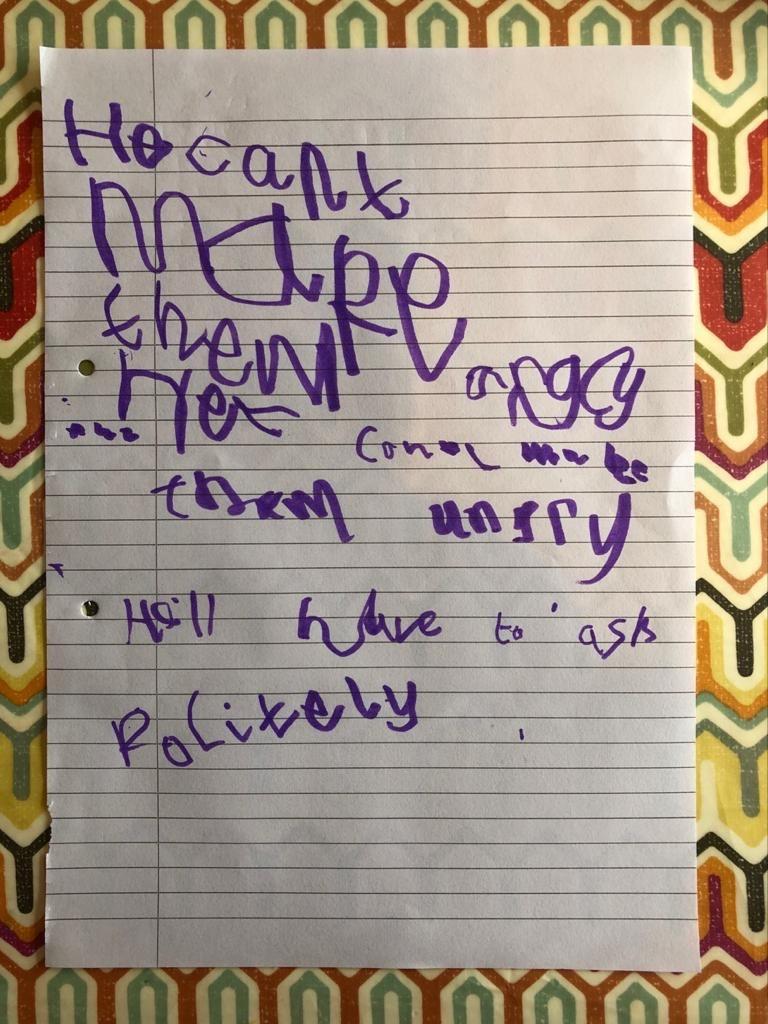 He cant
Make
them
Her angy
Canot make
them ungry
He'll have to ask
Politely